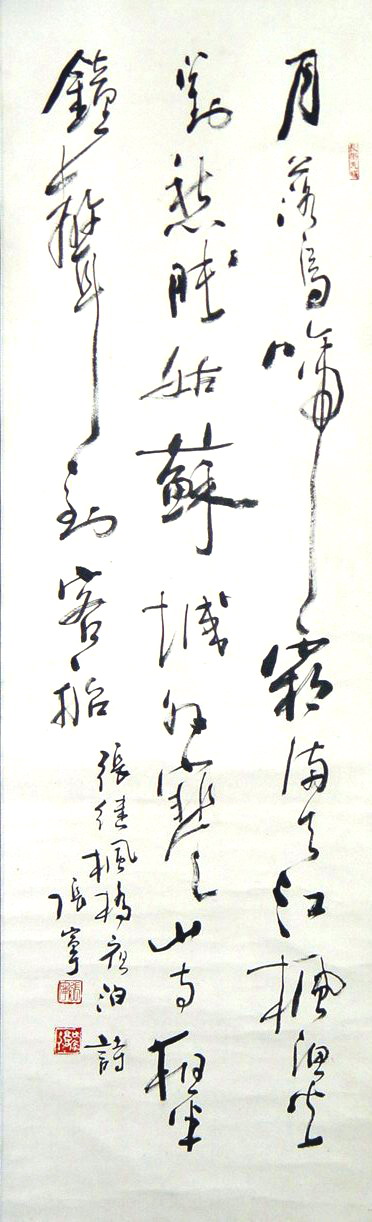 月落烏啼霜滿天江楓漁火
對愁眠姑蘇城外寒山寺夜半
鐘聲到客船
張繼楓橋夜泊詩
張寧